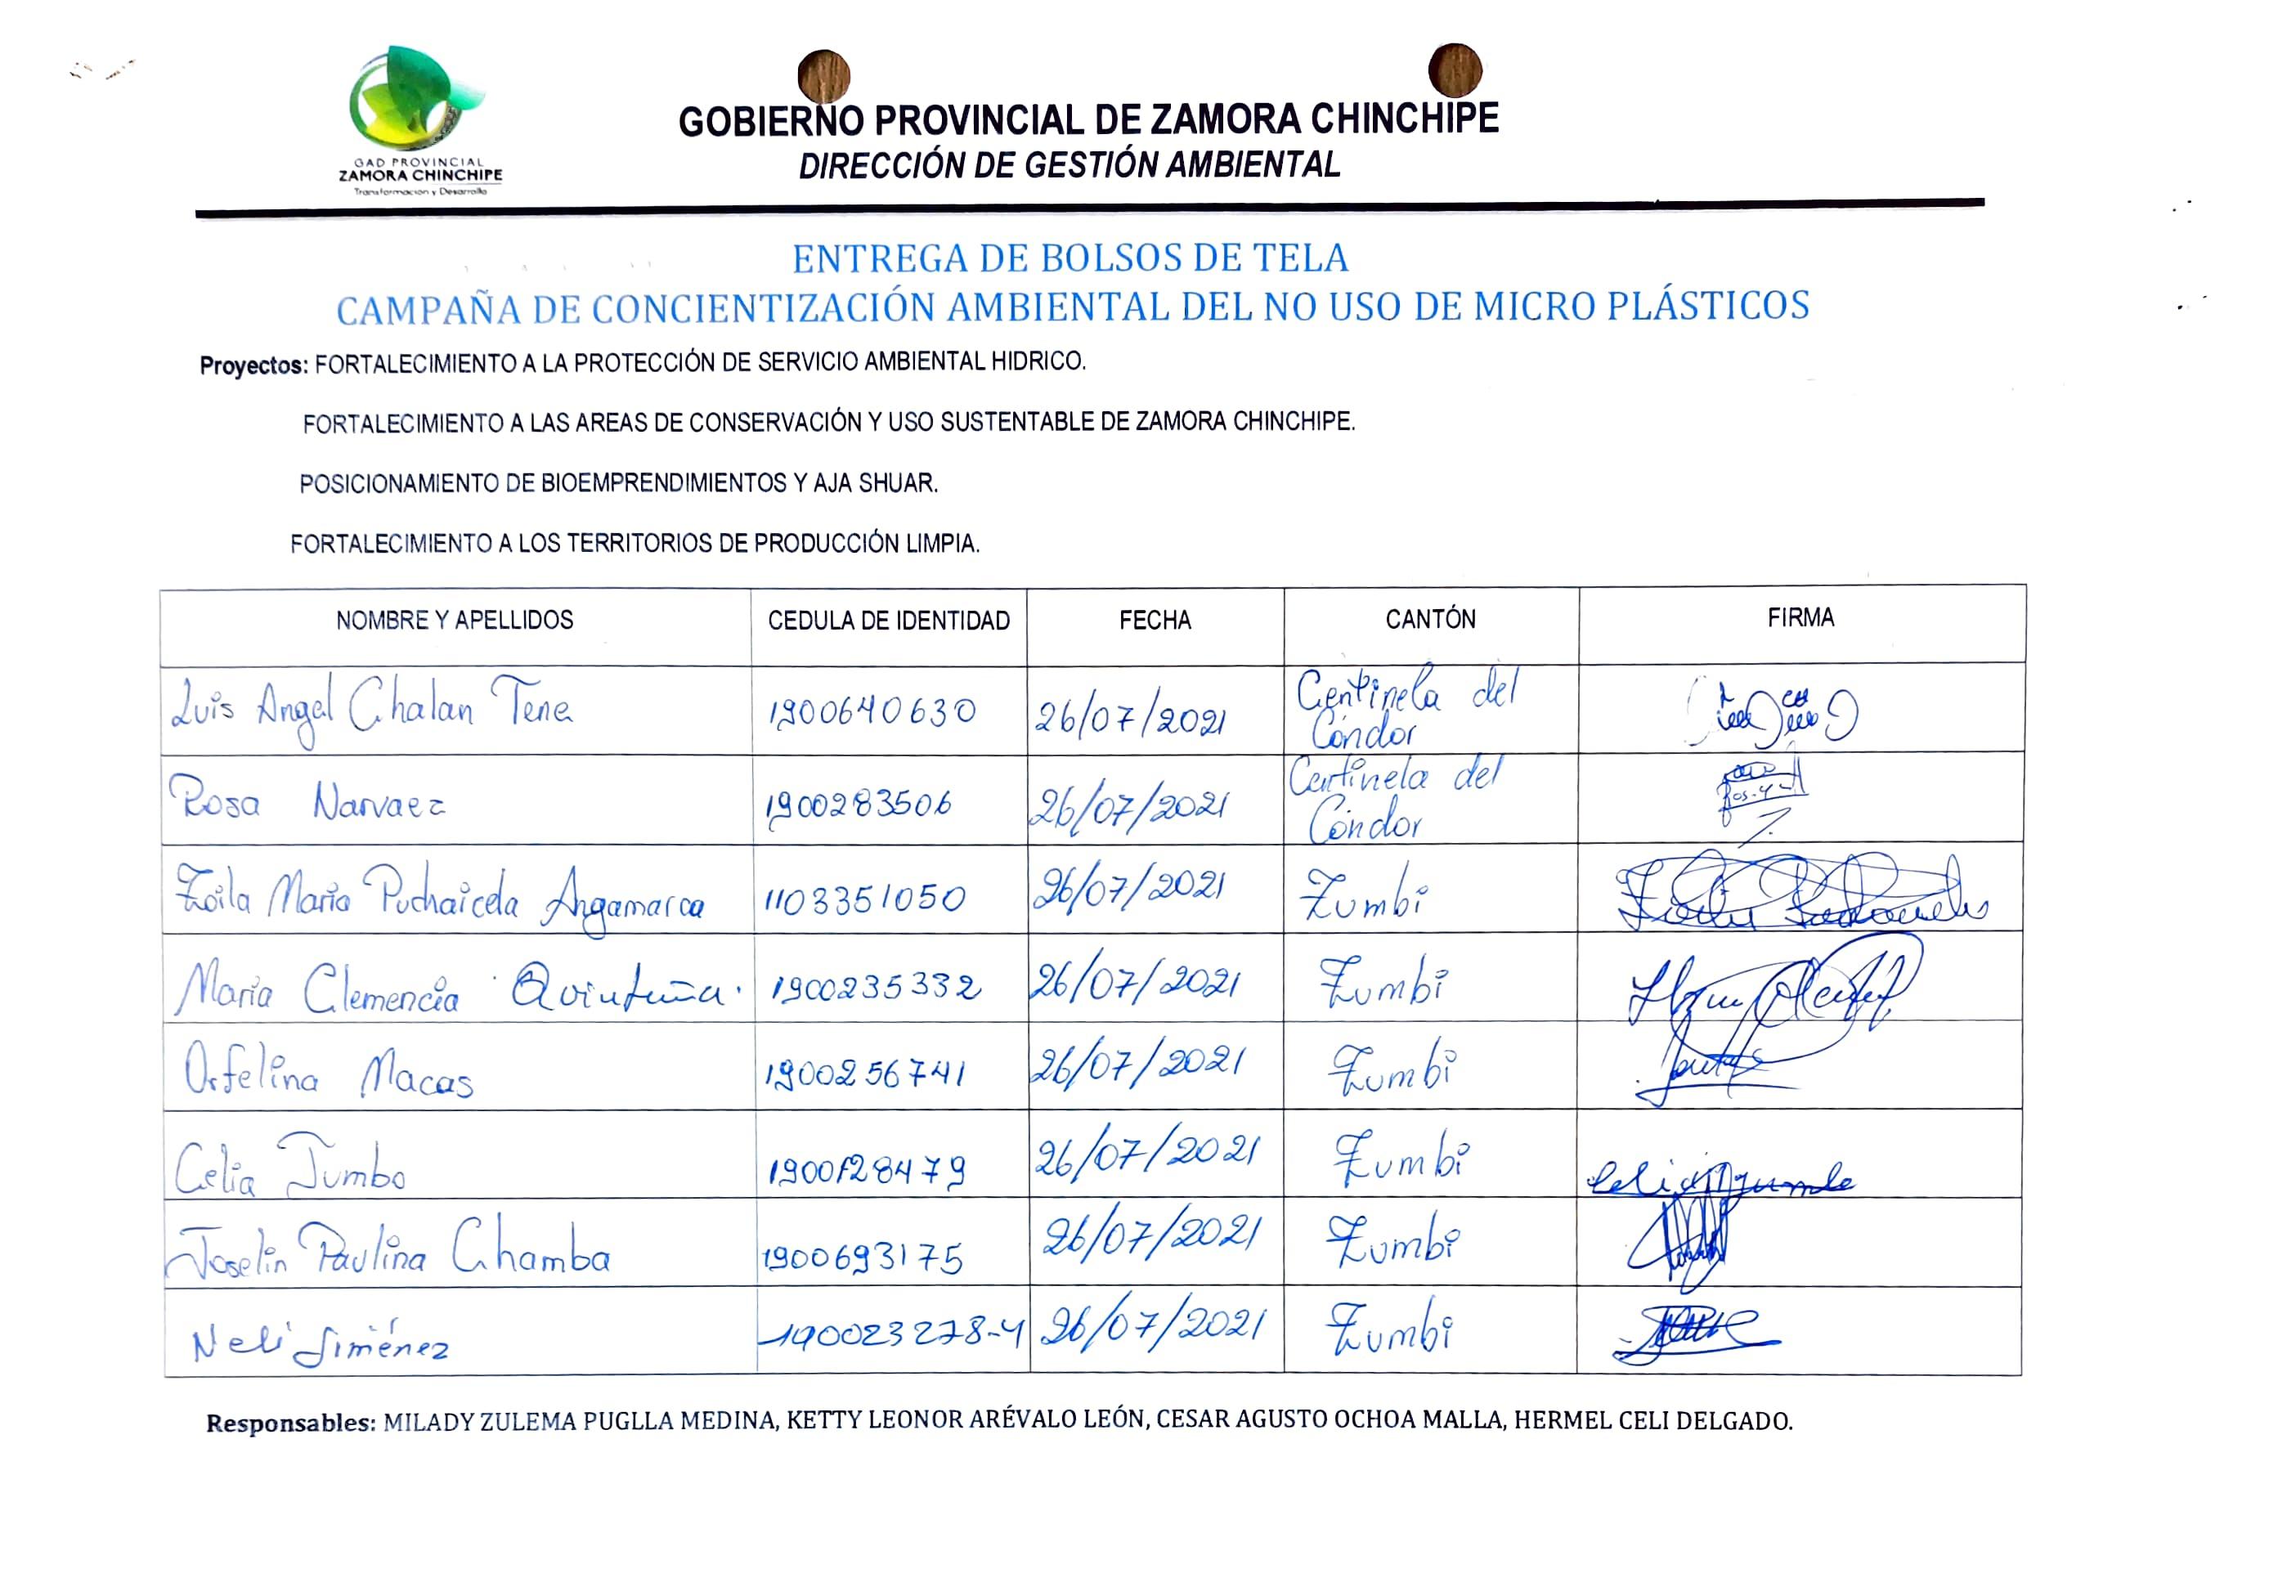 GAD PROVINCIAL
ZAMORA CHINCHIPE
Transformación y Desarrollo
GOBIERNO PROVINCIAL DE ZAMORA CHINCHIPE
DIRECCIÓN DE GESTIÓN AMBIENTAL
ENTREGA DE BOLSOS DE TELA
CAMPAÑA DE CONCIENTIZACIÓN AMBIENTAL DEL NO USO DE MICRO PLÁSTICOS
Proyectos: FORTALECIMIENTO A LA PROTECCIÓN DE SERVICIO AMBIENTAL HIDRICO.
FORTALECIMIENTO A LAS AREAS DE CONSERVACIÓN Y USO SUSTENTABLE DE ZAMORA CHINCHIPE.
POSICIONAMIENTO DE BIOEMPRENDIMIENTOS Y AJA SHUAR.
FORTALECIMIENTO A LOS TERRITORIOS DE PRODUCCIÓN LIMPIA.
NOMBRE Y APELLIDOS CEDULA DE IDENTIDAD FECHA CANTÓN FIRMA
Luis Angel Chalan Tene 1900640630 26/07/2021 Centinela del
Cóndor
Rosa Narvaez 1900283506 26/07/2021 Centinela del
Cóndor
Zoila Maria Puchaicela Angamarca 1103351050 26/07/2021 Zumbi
Maria Clemencia Quintuña. 1900235332 26/07/2021 Zumbi
Orfelina Macas 1900256741 26/07/2021 Zumbi
Celia Jumbo 1900128479 26/07/2021 Zumbi
Joselin Paulina Chamba 1900693175 26/07/2021 Zumbi
Neli Jiménez 190023278-4 26/07/2021 Zumbi
Responsables: MILADY ZULEMA PUGLLA MEDINA, KETTY LEONOR ARÉVALO LEÓN, CESAR AGUSTO OCHOA MALLA, HERMEL CELI DELGADO.